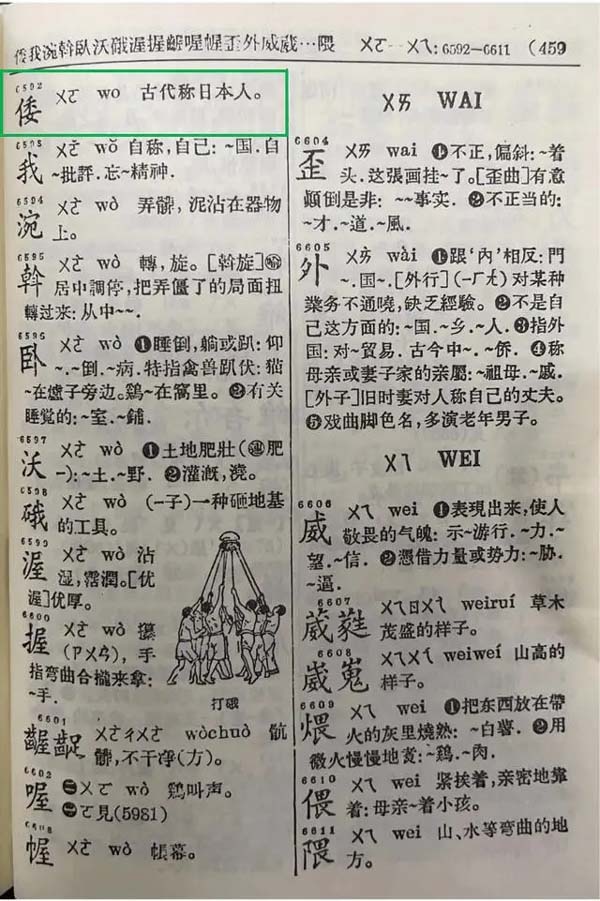 倭我涴斡臥沃硪渥握齷喔幄歪外威葳…隈 ㄨㄛ—ㄨㄟ: 6592—6611 (459
6592 倭 ㄨㄛ wo 古代称日本人。
我 ㄨㄛˇ wǒ 自称, 自己: ~国. 自
~批評. 忘~精神.
6594 涴 ㄨㄛˋ wò 弄髒, 泥沾在器物
上。
6595 斡 ㄨㄛˋ wò 轉, 旋。[斡旋]
居中調停, 把弄僵了的局面扭
轉过来: 从中~~.
6596 卧 ㄨㄛˋ wò ❶睡倒, 躺或趴: 仰
~.~倒.~病. 特指禽兽趴伏: 猫
~在爐子旁边。鷄~在窩里。❷有关
睡觉的: ~室. ~鋪.
6597 沃 ㄨㄛˋ wò ❶土地肥壯(肥
—): ~土. ~野. ❷灌溉, 澆。
6598 硪 ㄨㄛˋ wò (—子)一种砸地基
的工具。
6599 渥 ㄨㄛˋ wò 沾
湿, 霑潤。[优
渥]优厚。
6600 握 ㄨㄛˋ wò 攥
(ㄗㄨㄢˋ), 手
指弯曲合攏来拿:
~手.
打硪
6601 齷齪 ㄨㄛˋㄔㄨㄛˋ wòchuò 骯
髒, 不干凈(方)。
6602 喔 ㊀ㄨㄛ wo 鷄叫声。
㊁ㄛ見(5981)
6603 幄 ㄨㄛˋ wò 帳幕。
ㄨㄞ WAI
6604 歪 ㄨㄞ wai ❶不正, 偏斜: ~着
头. 这張画挂~了。[歪曲]有意
顛倒是非: ~~事实. ❷不正当的:
~才. ~道. ~風.
6605 外 ㄨㄞˋ wài ❶跟‘內’相反: 門
~. 国~. [外行](—ㄏㄤˊ)对某种
業务不通曉, 缺乏經驗。❷不是自
己这方面的: ~国. ~乡. ~人. ❸指外
国: 对~貿易. 古今中~. ~侨. ❹称
母亲或妻子家的亲屬: ~祖母. ~戚.
[外子]旧时妻对人称自己的丈夫。
❺戏曲脚色名, 多演老年男子。
ㄨㄟ WEI
6606 威 ㄨㄟ wei ❶表現出来, 使人
敬畏的气魄: 示~游行. ~力. ~
望. ~信. ❷憑借力量或势力: ~胁.
~逼.
6607 葳蕤 ㄨㄟㄖㄨㄟˊ weiruí 草木
茂盛的样子。
6608 崴嵬 ㄨㄟㄨㄟˊ weiwéi 山高的
样子。
6609 煨 ㄨㄟ wei ❶把东西放在帶
火的灰里燒熟: ~白薯. ❷用
微火慢慢地煑: ~鷄. ~肉.
6610 偎 ㄨㄟ wei 紧挨着, 亲密地靠
着: 母亲~着小孩。
6611 隈 ㄨㄟ wei 山、水等弯曲的地
方。